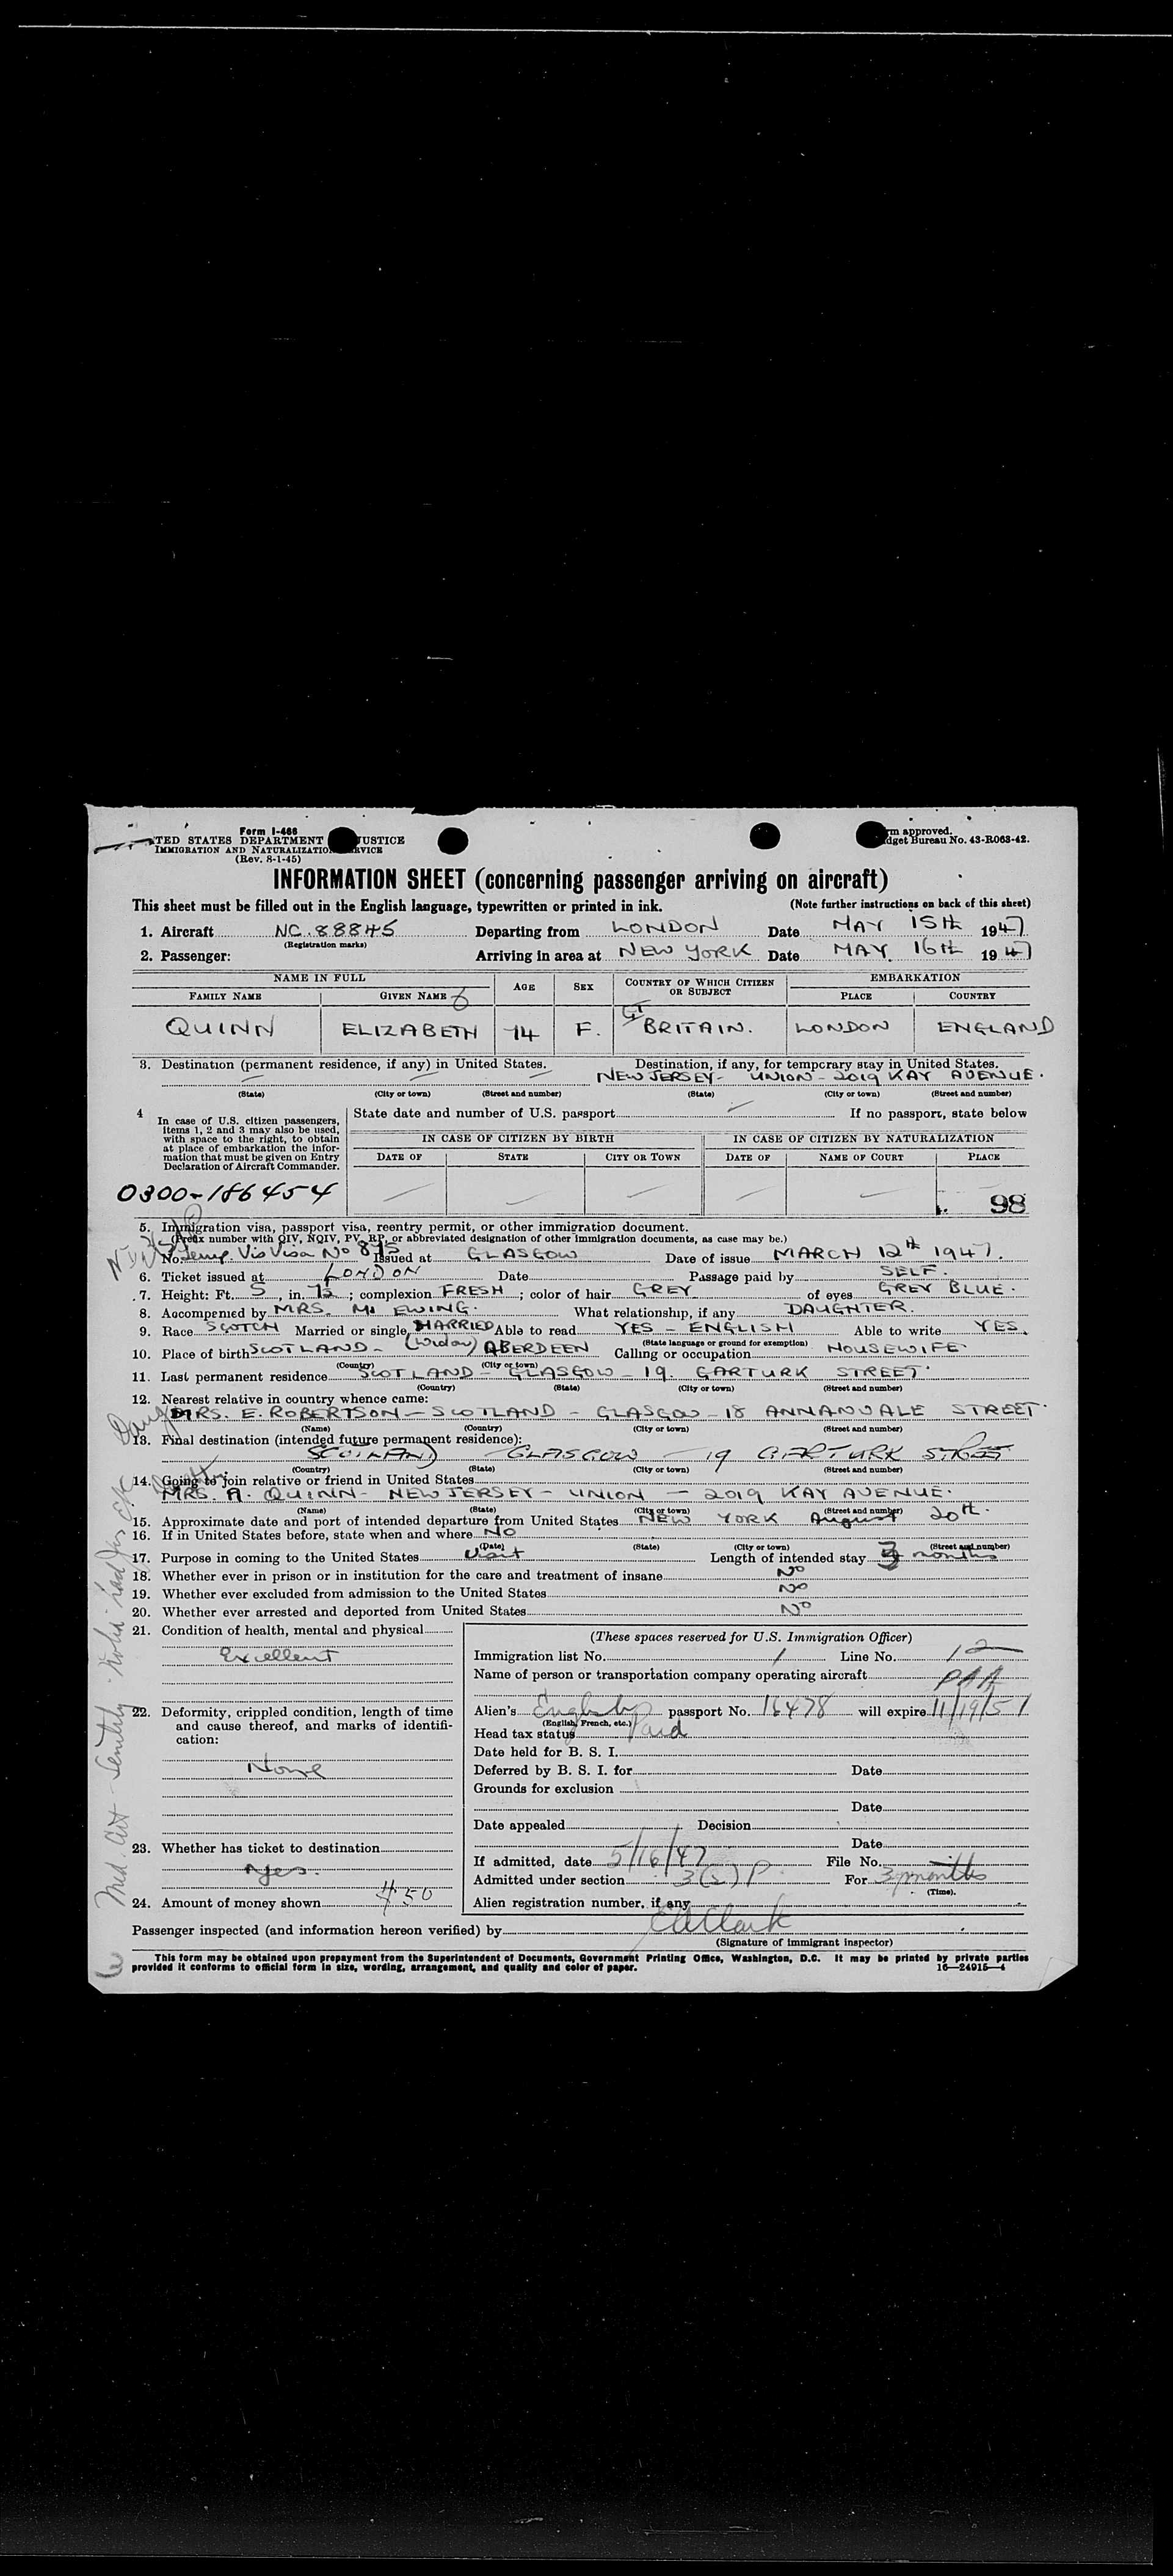 Form I-466
TED STATES DEPARTMENT USTICE
IMMIGRATION AND NATURALIZATION SERVICE
(Rev. 8-1-45)
rm approved.
dget Bureau No. 43-R063-42.
INFORMATION SHEET (concerning passenger arriving on aircraft)
This sheet must be filled out in the English language, typewritten or printed in ink. (Note further instructions on back of this sheet)
1. Aircraft NC.88845 Departing from LONDON Date MAY 15th 1947
(Registration marks)
2. Passenger: Arriving in area at NEW YORK Date MAY 16th 1947
NAME IN FULL AGE SEX COUNTRY OF WHICH CITIZEN OR SUBJECT EMBARKATION
FAMILY NAME GIVEN NAME PLACE COUNTRY
QUINN ELIZABETH 74 F. GT BRITAIN. LONDON ENGLAND
3. Destination (permanent residence, if any) in United States. Destination, if any, for temporary stay in United States.
NEW JERSEY - UNION - 2019 KAY AVENUE.
(State) (City or town) (Street and number) (State) (City or town) (Street and number)
4 In case of U.S. citizen passengers, items 1, 2 and 3 may also be used, with space to the right, to obtain at place of embarkation the information that must be given on Entry Declaration of Aircraft Commander.
State date and number of U.S. passport If no passport, state below
IN CASE OF CITIZEN BY BIRTH IN CASE OF CITIZEN BY NATURALIZATION
DATE OF STATE CITY OR TOWN DATE OF NAME OF COURT PLACE
0300-186454
98
5. Immigration visa, passport visa, reentry permit, or other immigration document.
(Prefix number with QIV, NQIV, PV, RP, or abbreviated designation of other immigration documents, as case may be.)
No. Temp. Vis Visa No 875 Issued at GLASGOW Date of issue MARCH 12th 1947.
6. Ticket issued at LONDON Date Passage paid by SELF.
7. Height: Ft. 5, in. ; complexion FRESH; color of hair GREY of eyes GREY BLUE.
8. Accompanied by MRS. M. EWING. What relationship, if any DAUGHTER.
9. Race SCOTCH Married or single MARRIED Able to read YES - ENGLISH Able to write YES.
(State language or ground for exemption)
10. Place of birth SCOTLAND - (Widow) ABERDEEN Calling or occupation HOUSEWIFE.
(Country) (City or town)
11. Last permanent residence SCOTLAND - GLASGOW - 19. GARTURK STREET.
(Country) (State) (City or town) (Street and number)
12. Nearest relative in country whence came:
MRS. E. ROBERTSON - SCOTLAND - GLASGOW - 18 ANNANDALE STREET.
(Name) (Country) (City or town) (Street and number)
13. Final destination (intended future permanent residence):
SCOTLAND GLASGOW 19 GARTURK STREET
(Country) (State) (City or town) (Street and number)
14. Going to join relative or friend in United States
MRS. A. QUINN - NEW JERSEY - UNION - 2019 KAY AVENUE.
(Name) (State) (City or town) (Street and number)
15. Approximate date and port of intended departure from United States NEW YORK August 20th.
16. If in United States before, state when and where NO
(Date) (State) (City or town) (Street and number)
17. Purpose in coming to the United States Visit Length of intended stay 3 months
18. Whether ever in prison or in institution for the care and treatment of insane No
19. Whether ever excluded from admission to the United States No
20. Whether ever arrested and deported from United States No
21. Condition of health, mental and physical
Excellent
22. Deformity, crippled condition, length of time and cause thereof, and marks of identification:
None
23. Whether has ticket to destination
Yes.
24. Amount of money shown $50
(These spaces reserved for U.S. Immigration Officer)
Immigration list No. 1 Line No. 12
Name of person or transportation company operating aircraft PAA
Alien's English passport No. 16478 will expire 11/19/51
(English, French, etc.)
Head tax status Paid
Date held for B. S. I.
Deferred by B. S. I. for Date
Grounds for exclusion
Date
Date appealed Decision
Date
If admitted, date 5/16/47 File No.
Admitted under section 3(2) P For 3 months
(Time).
Alien registration number, if any
Passenger inspected (and information hereon verified) by EAClark
(Signature of immigrant inspector)
This form may be obtained upon prepayment from the Superintendent of Documents, Government Printing Office, Washington, D.C. It may be printed by private parties
provided it conforms to official form in size, wording, arrangement, and quality and color of paper. 16—24915-4